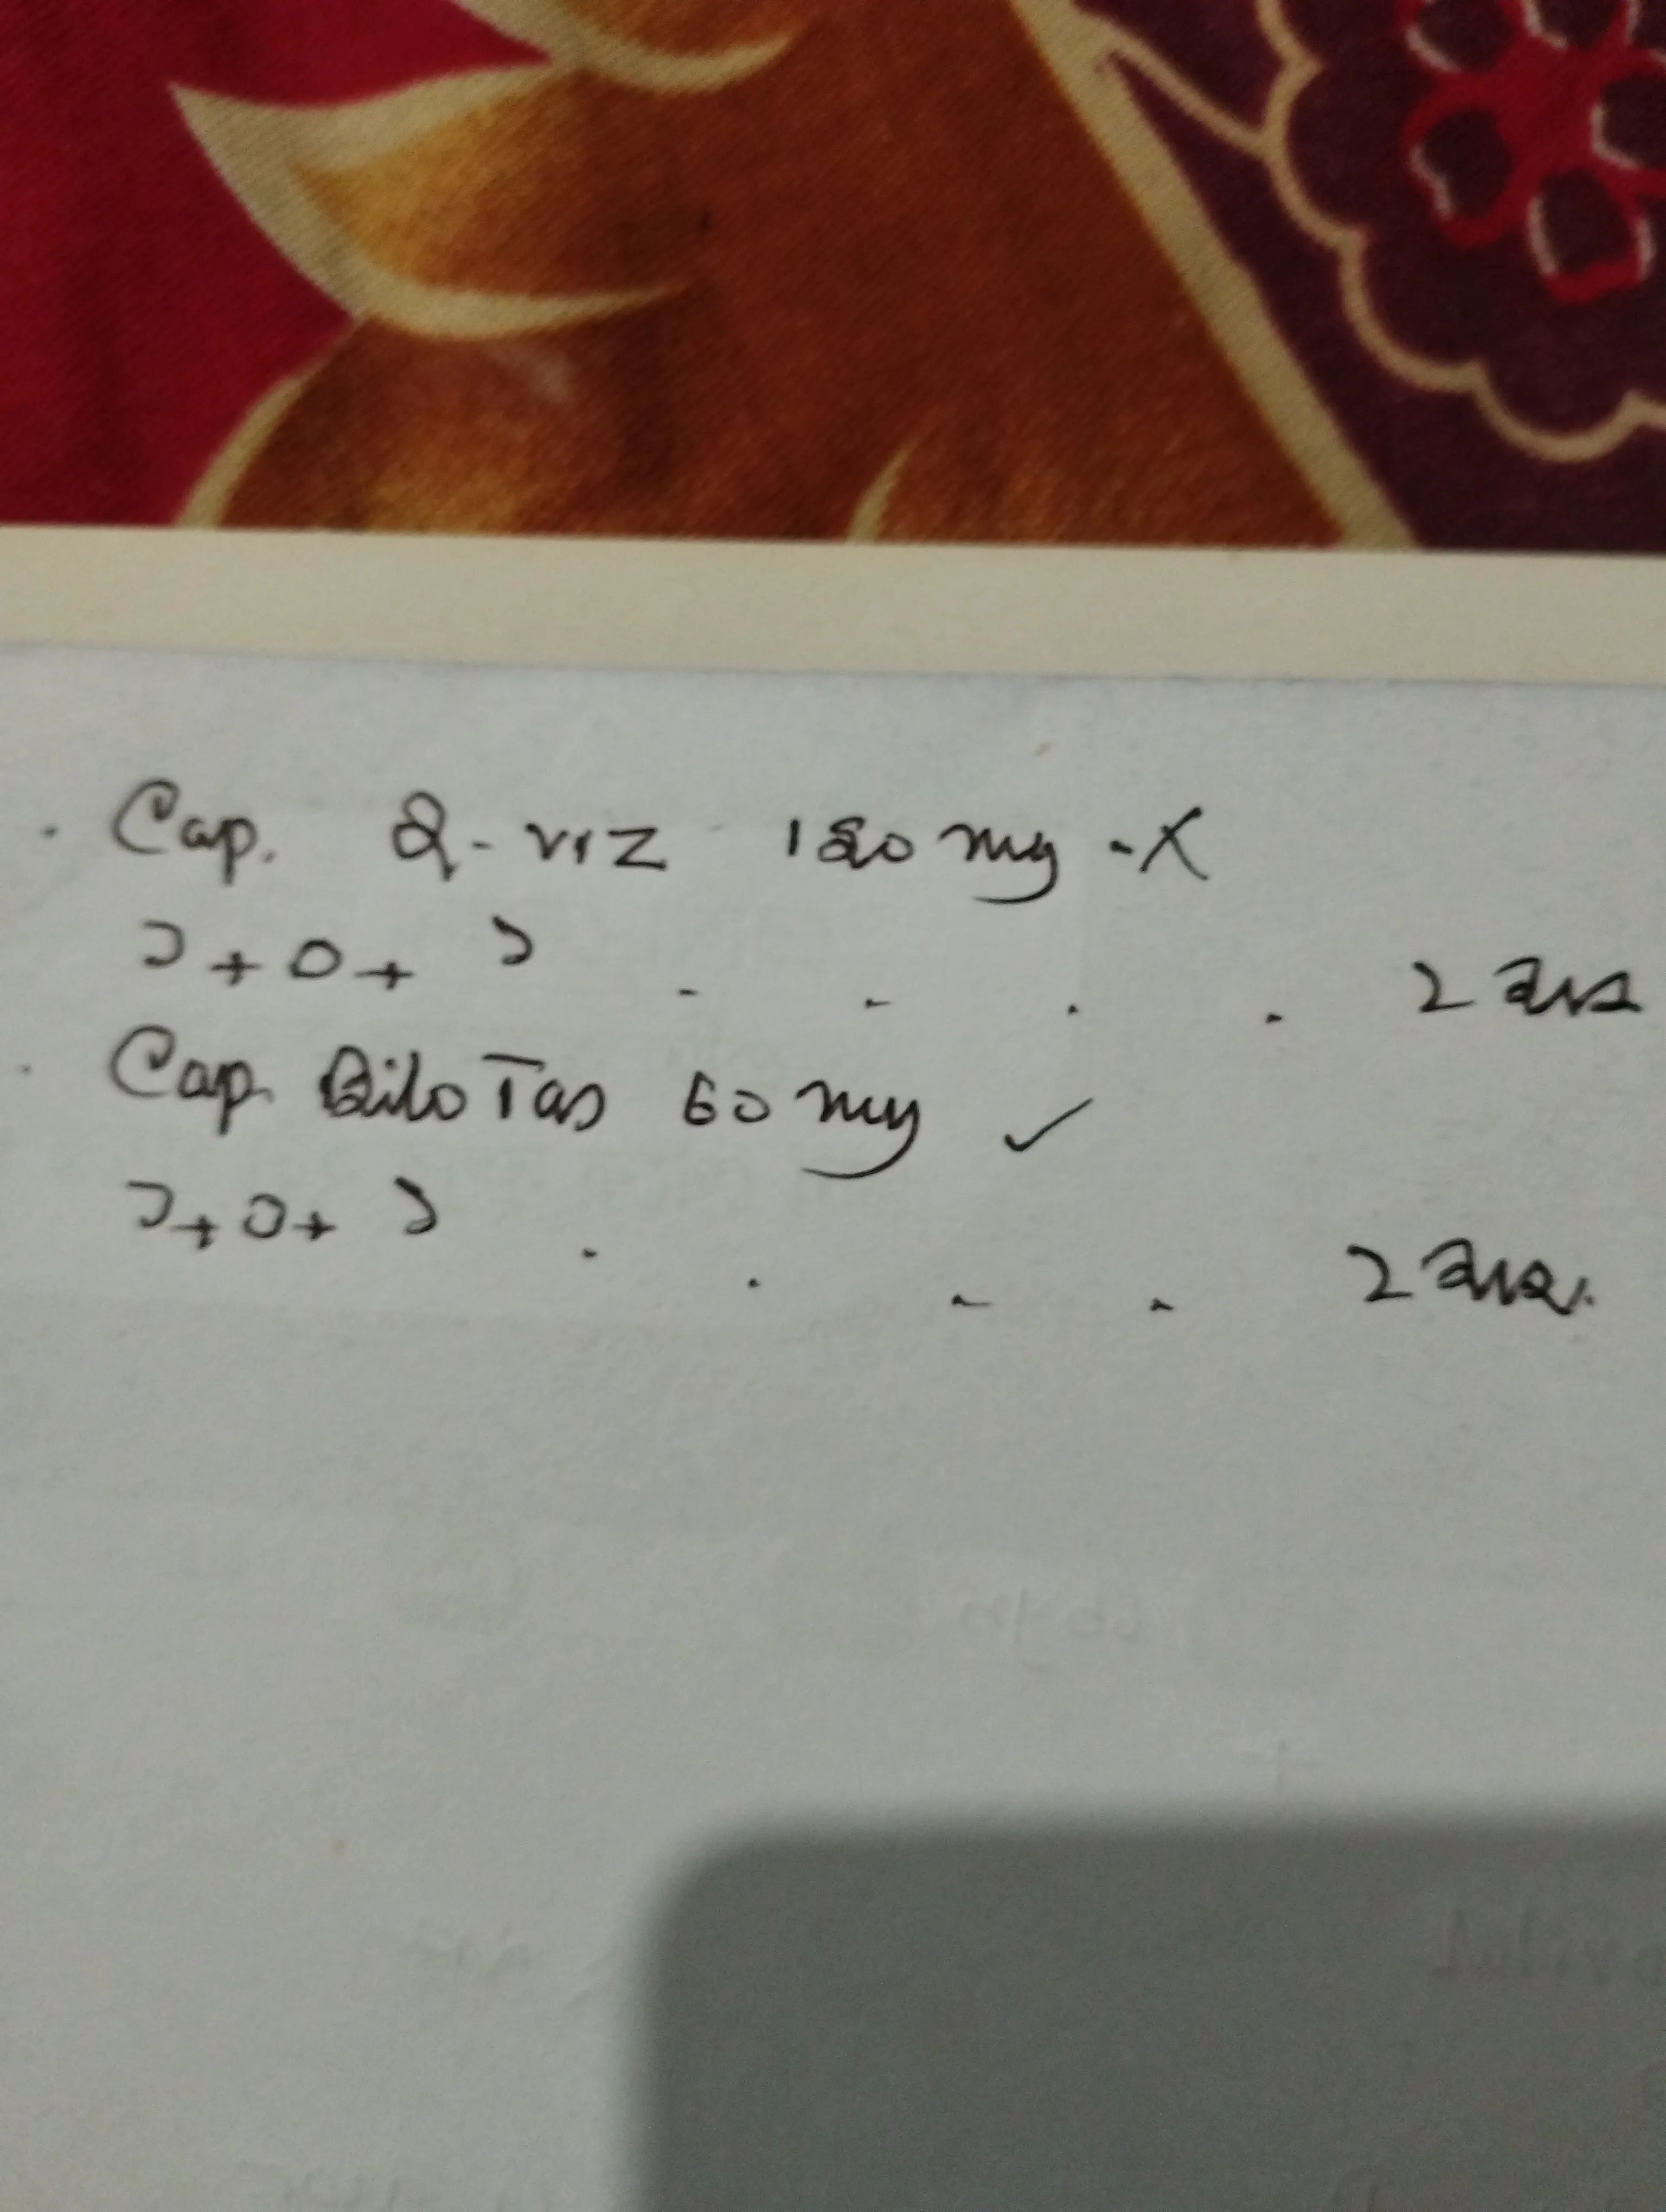 Cap. Q-viz 120 mg -X
১+০+১ . . . . 2 মাস
Cap. BiloTas 60 mg ✓
১+০+১ . . . . 2 মাস.